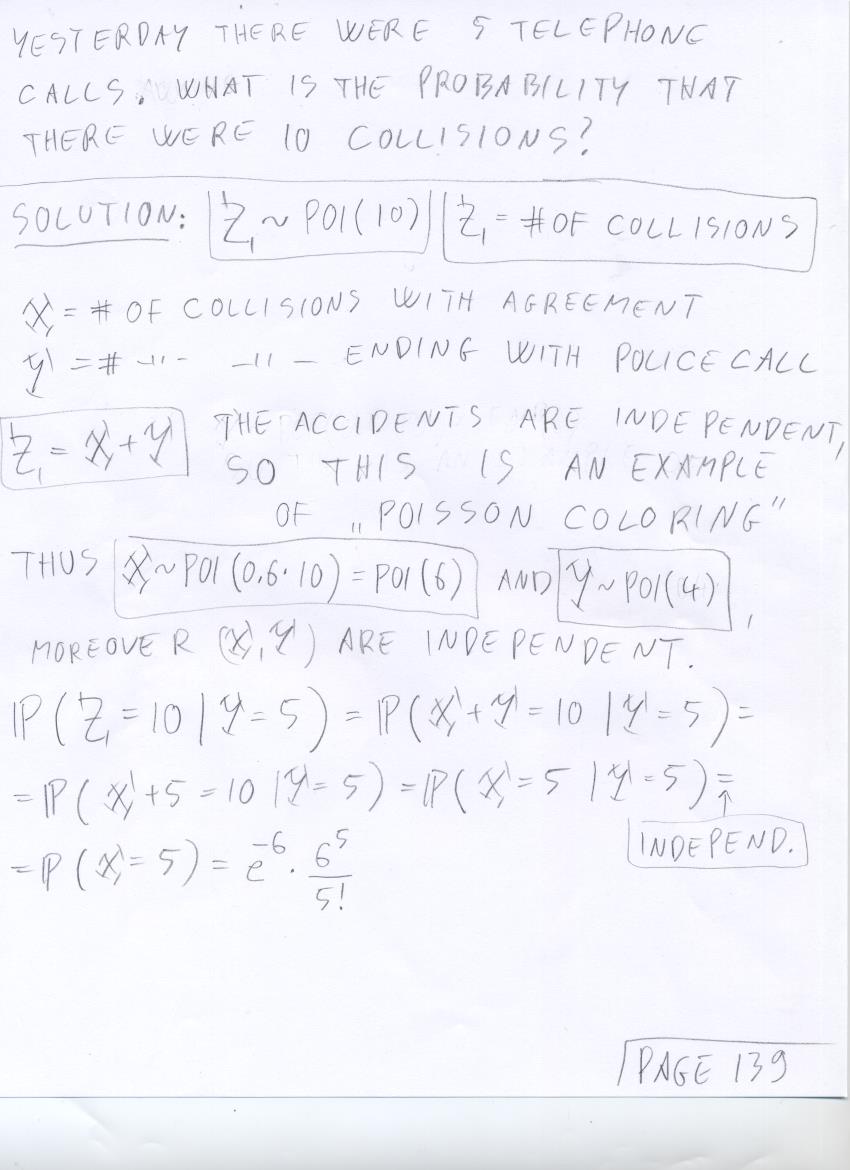 YESTERDAY THERE WERE 5 TELEPHONE
CALLS. WHAT IS THE PROBABILITY THAT
THERE WERE 10 COLLISIONS?
SOLUTION: Z ~ POI(10) Z = # OF COLLISIONS
X = # OF COLLISIONS WITH AGREEMENT
Y = # -"- -"- ENDING WITH POLICE CALL
Z = X + Y THE ACCIDENTS ARE INDEPENDENT,
SO THIS IS AN EXAMPLE
OF „POISSON COLORING"
THUS X ~ POI(0.6·10) = POI(6) AND Y ~ POI(4),
MOREOVER (X, Y) ARE INDEPENDENT.
ℙ(Z = 10 | Y = 5) = ℙ(X + Y = 10 | Y = 5) =
= ℙ(X + 5 = 10 | Y = 5) = ℙ(X = 5 | Y = 5) =
↑
INDEPEND.
= ℙ(X = 5) = e^-6 · 6^5/5!
PAGE 139